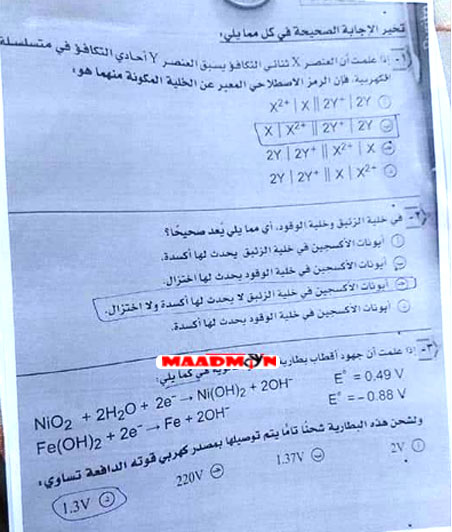 تخير الإجابة الصحيحة في كل مما يلي:
١- إذا علمت أن العنصر X ثنائي التكافؤ يسبق العنصر Y أحادي التكافؤ في متسلسلة
الكهربية، فإن الرمز الاصطلاحي المعبر عن الخلية المكونة منهما هو:
أ X²⁺ | X || 2Y⁺ | 2Y
ب X | X²⁺ || 2Y⁺ | 2Y
ج 2Y | 2Y⁺ || X²⁺ | X
د 2Y | 2Y⁺ || X | X²⁺
٢- في خلية الزئبق وخلية الوقود، أي مما يلي يُعد صحيحًا؟
أ أيونات الأكسجين في خلية الزئبق يحدث لها أكسدة.
ب أيونات الأكسجين في خلية الوقود يحدث لها اختزال.
ج أيونات الأكسجين في خلية الزئبق لا يحدث لها أكسدة ولا اختزال.
د أيونات الأكسجين في خلية الوقود يحدث لها أكسدة.
٣- إذا علمت أن جهود أقطاب بطارية هي كما يلي:
MAADMOYN
NiO₂ + 2H₂O + 2e⁻ → Ni(OH)₂ + 2OH⁻ E° = 0.49 V
Fe(OH)₂ + 2e⁻ → Fe + 2OH⁻ E° = -0.88 V
ولشحن هذه البطارية شحنًا تامًا يتم توصيلها بمصدر كهربي قوته الدافعة تساوي:
أ 2V ب 1.37V ج 220V د 1.3V